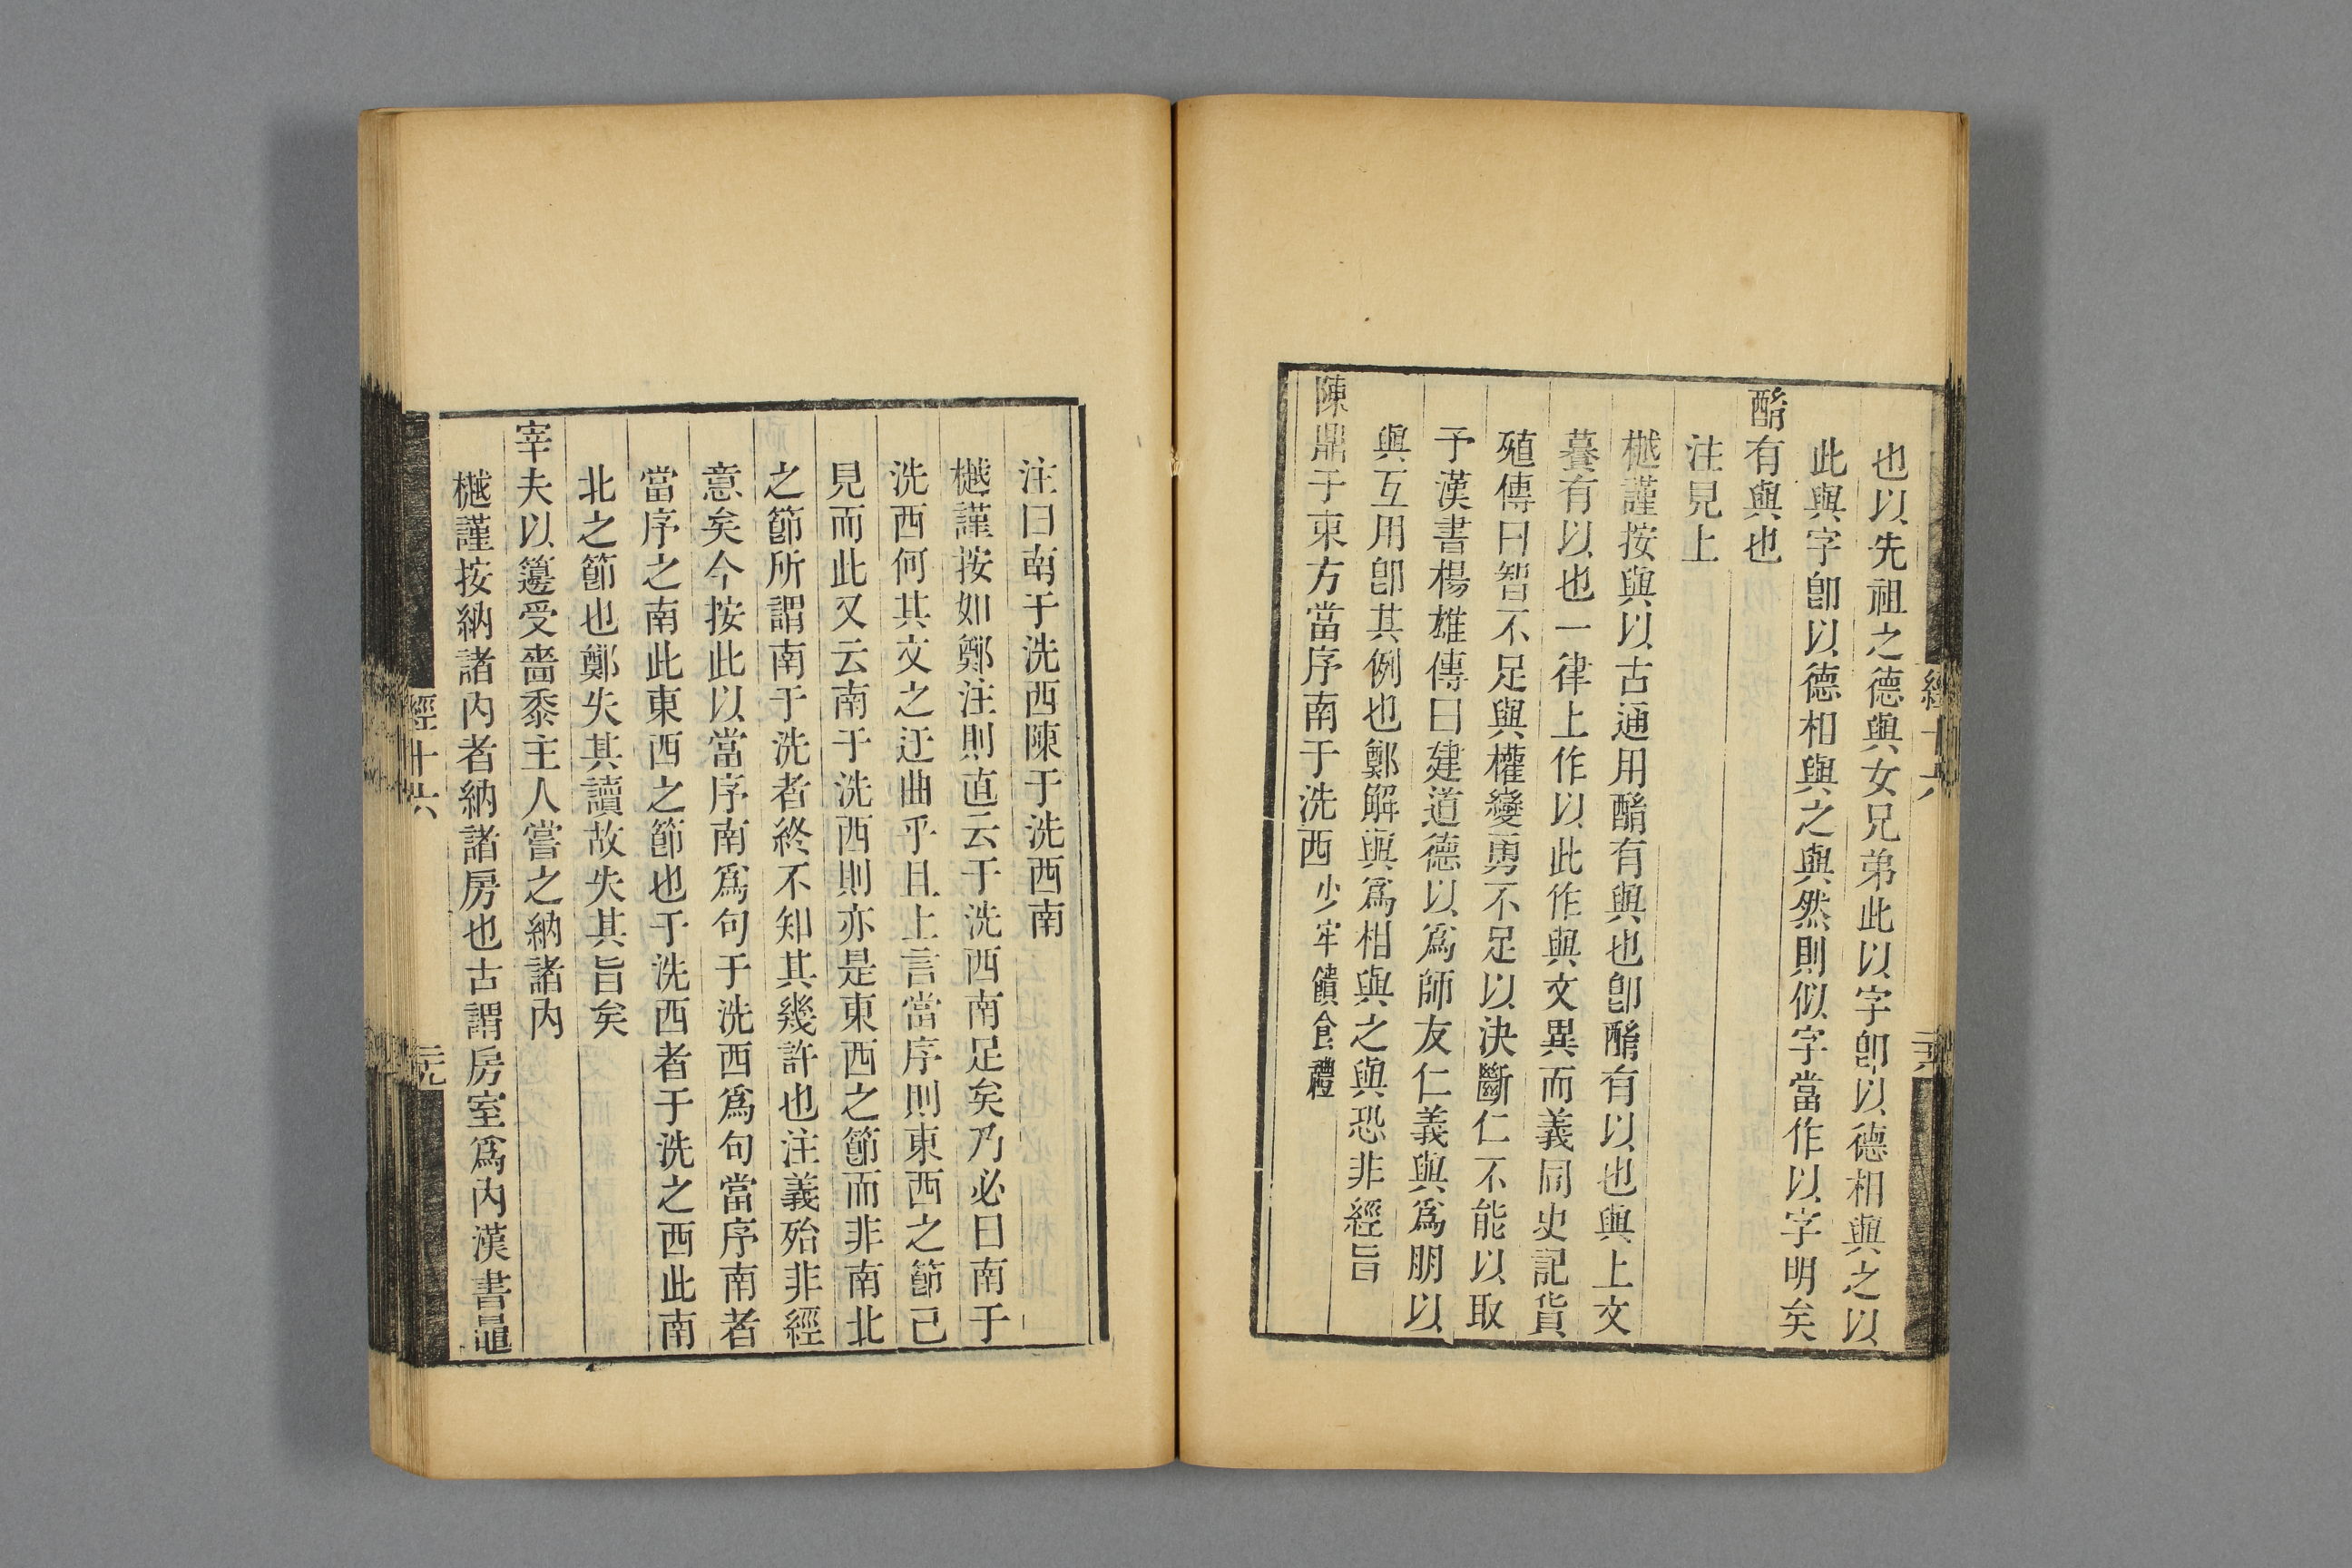 也以先祖之德與女兄弟此以字卽以德相與之以
此與字卽以德相與之與然則似字當作以字明矣
酳有與也
注見上
樾謹按與以古通用酳有與也卽酳有以也與上文
䕩有以也一律上作以此作與文異而義同史記貨
殖傳曰智不足與權變勇不足以決斷仁不能以取
予漢書楊雄傳曰建道德以爲師友仁義與爲朋以
與互用卽其例也鄭解與爲相與之與恐非經旨
陳鼎于東方當序南于洗西少牢饋食禮
注曰南于洗西陳于洗西南
樾謹按如鄭注則直云于洗西南足矣乃必曰南于
洗西何其文之迂曲乎且上言當序則東西之節己
見而此又云南于洗西則亦是東西之節而非南北
之節所謂南于洗者終不知其幾許也注義殆非經
意矣今按此以當序南爲句于洗西爲句當序南者
當序之南此東西之節也于洗西者于洗之西此南
北之節也鄭失其讀故失其旨矣
宰夫以籩受嗇黍主人嘗之納諸內
樾謹按納諸內者納諸房也古謂房室爲內漢書鼂
經十六